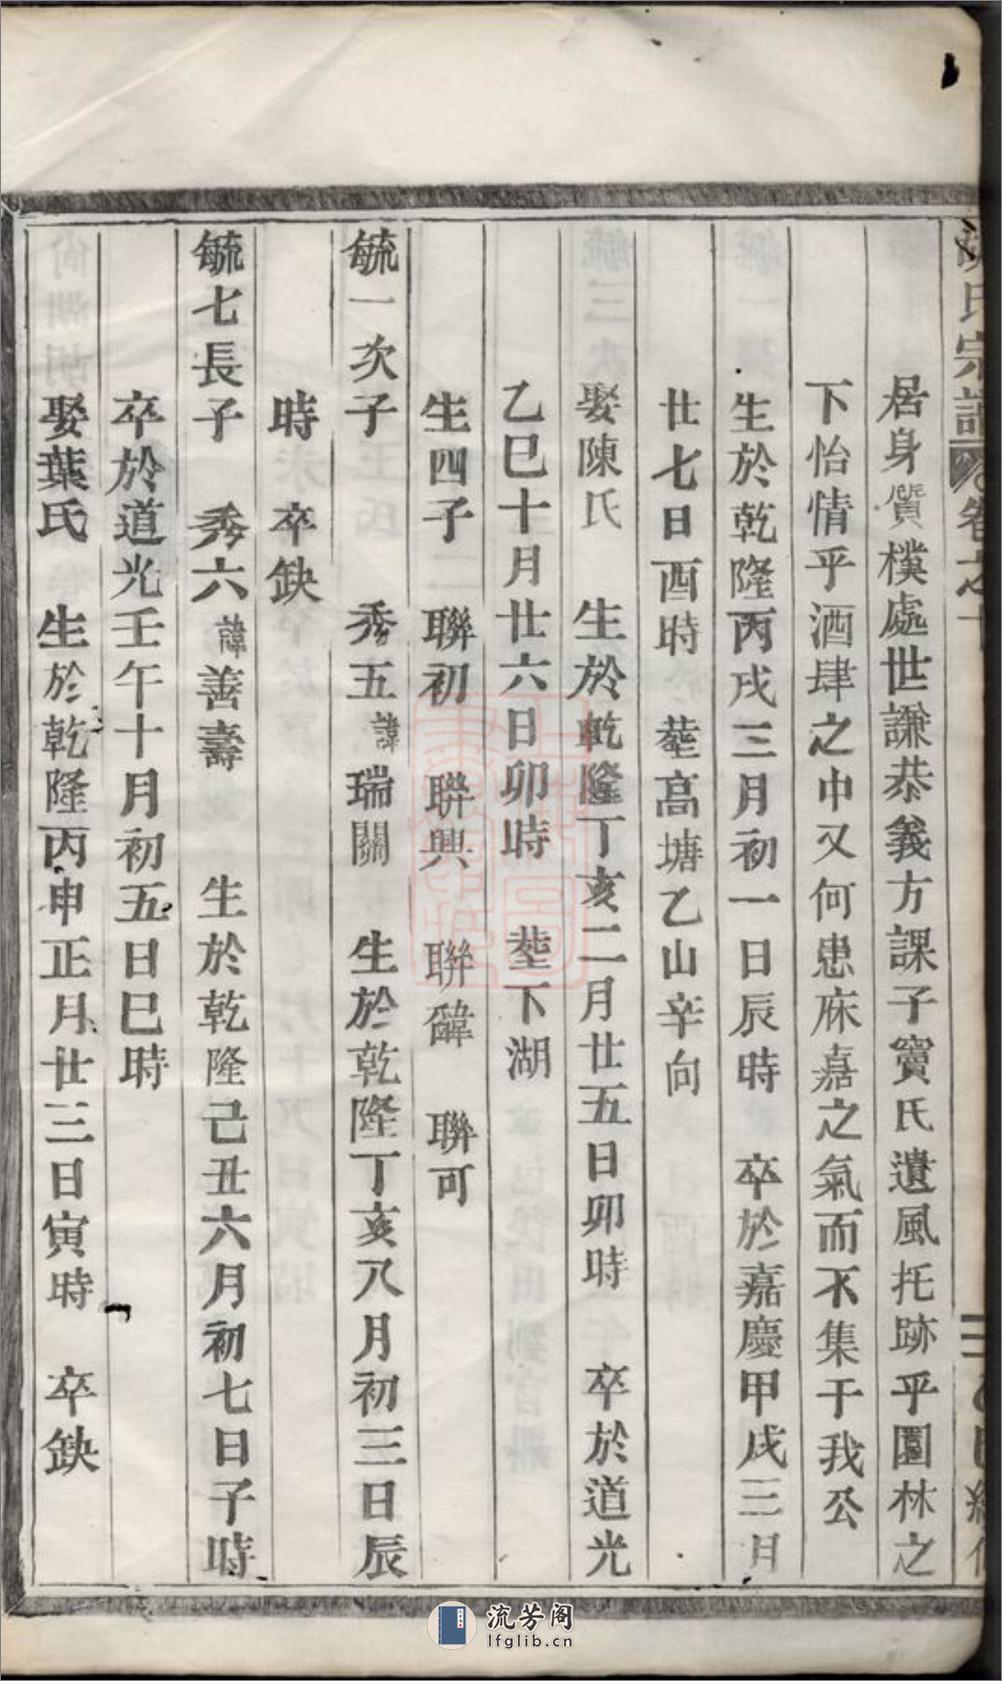 氏宗譜 卷之十
居身質樸處世謙恭義方課子竇氏遺風托跡乎園林之
下怡情乎酒肆之中又何患庥嘉之氣而不集于我公
生於乾隆丙戌三月初一日辰時 卒於嘉慶甲戌三月
廿七日酉時 塟高塘乙山辛向
娶陳氏 生於乾隆丁亥二月廿五日卯時 卒於道光
乙巳十月廿六日卯時 塟下湖
生四子 聯初 聯興 聯 聯可
毓一次子 秀五諱瑞關 生於乾隆丁亥八月初三日辰
時 卒缺
毓七長子 秀六諱善壽 生於乾隆己丑六月初七日子時
卒於道光壬午十月初五日巳時
娶葉氏 生於乾隆丙申正月廿三日寅時 卒缺
流芳阁
lfglib.cn